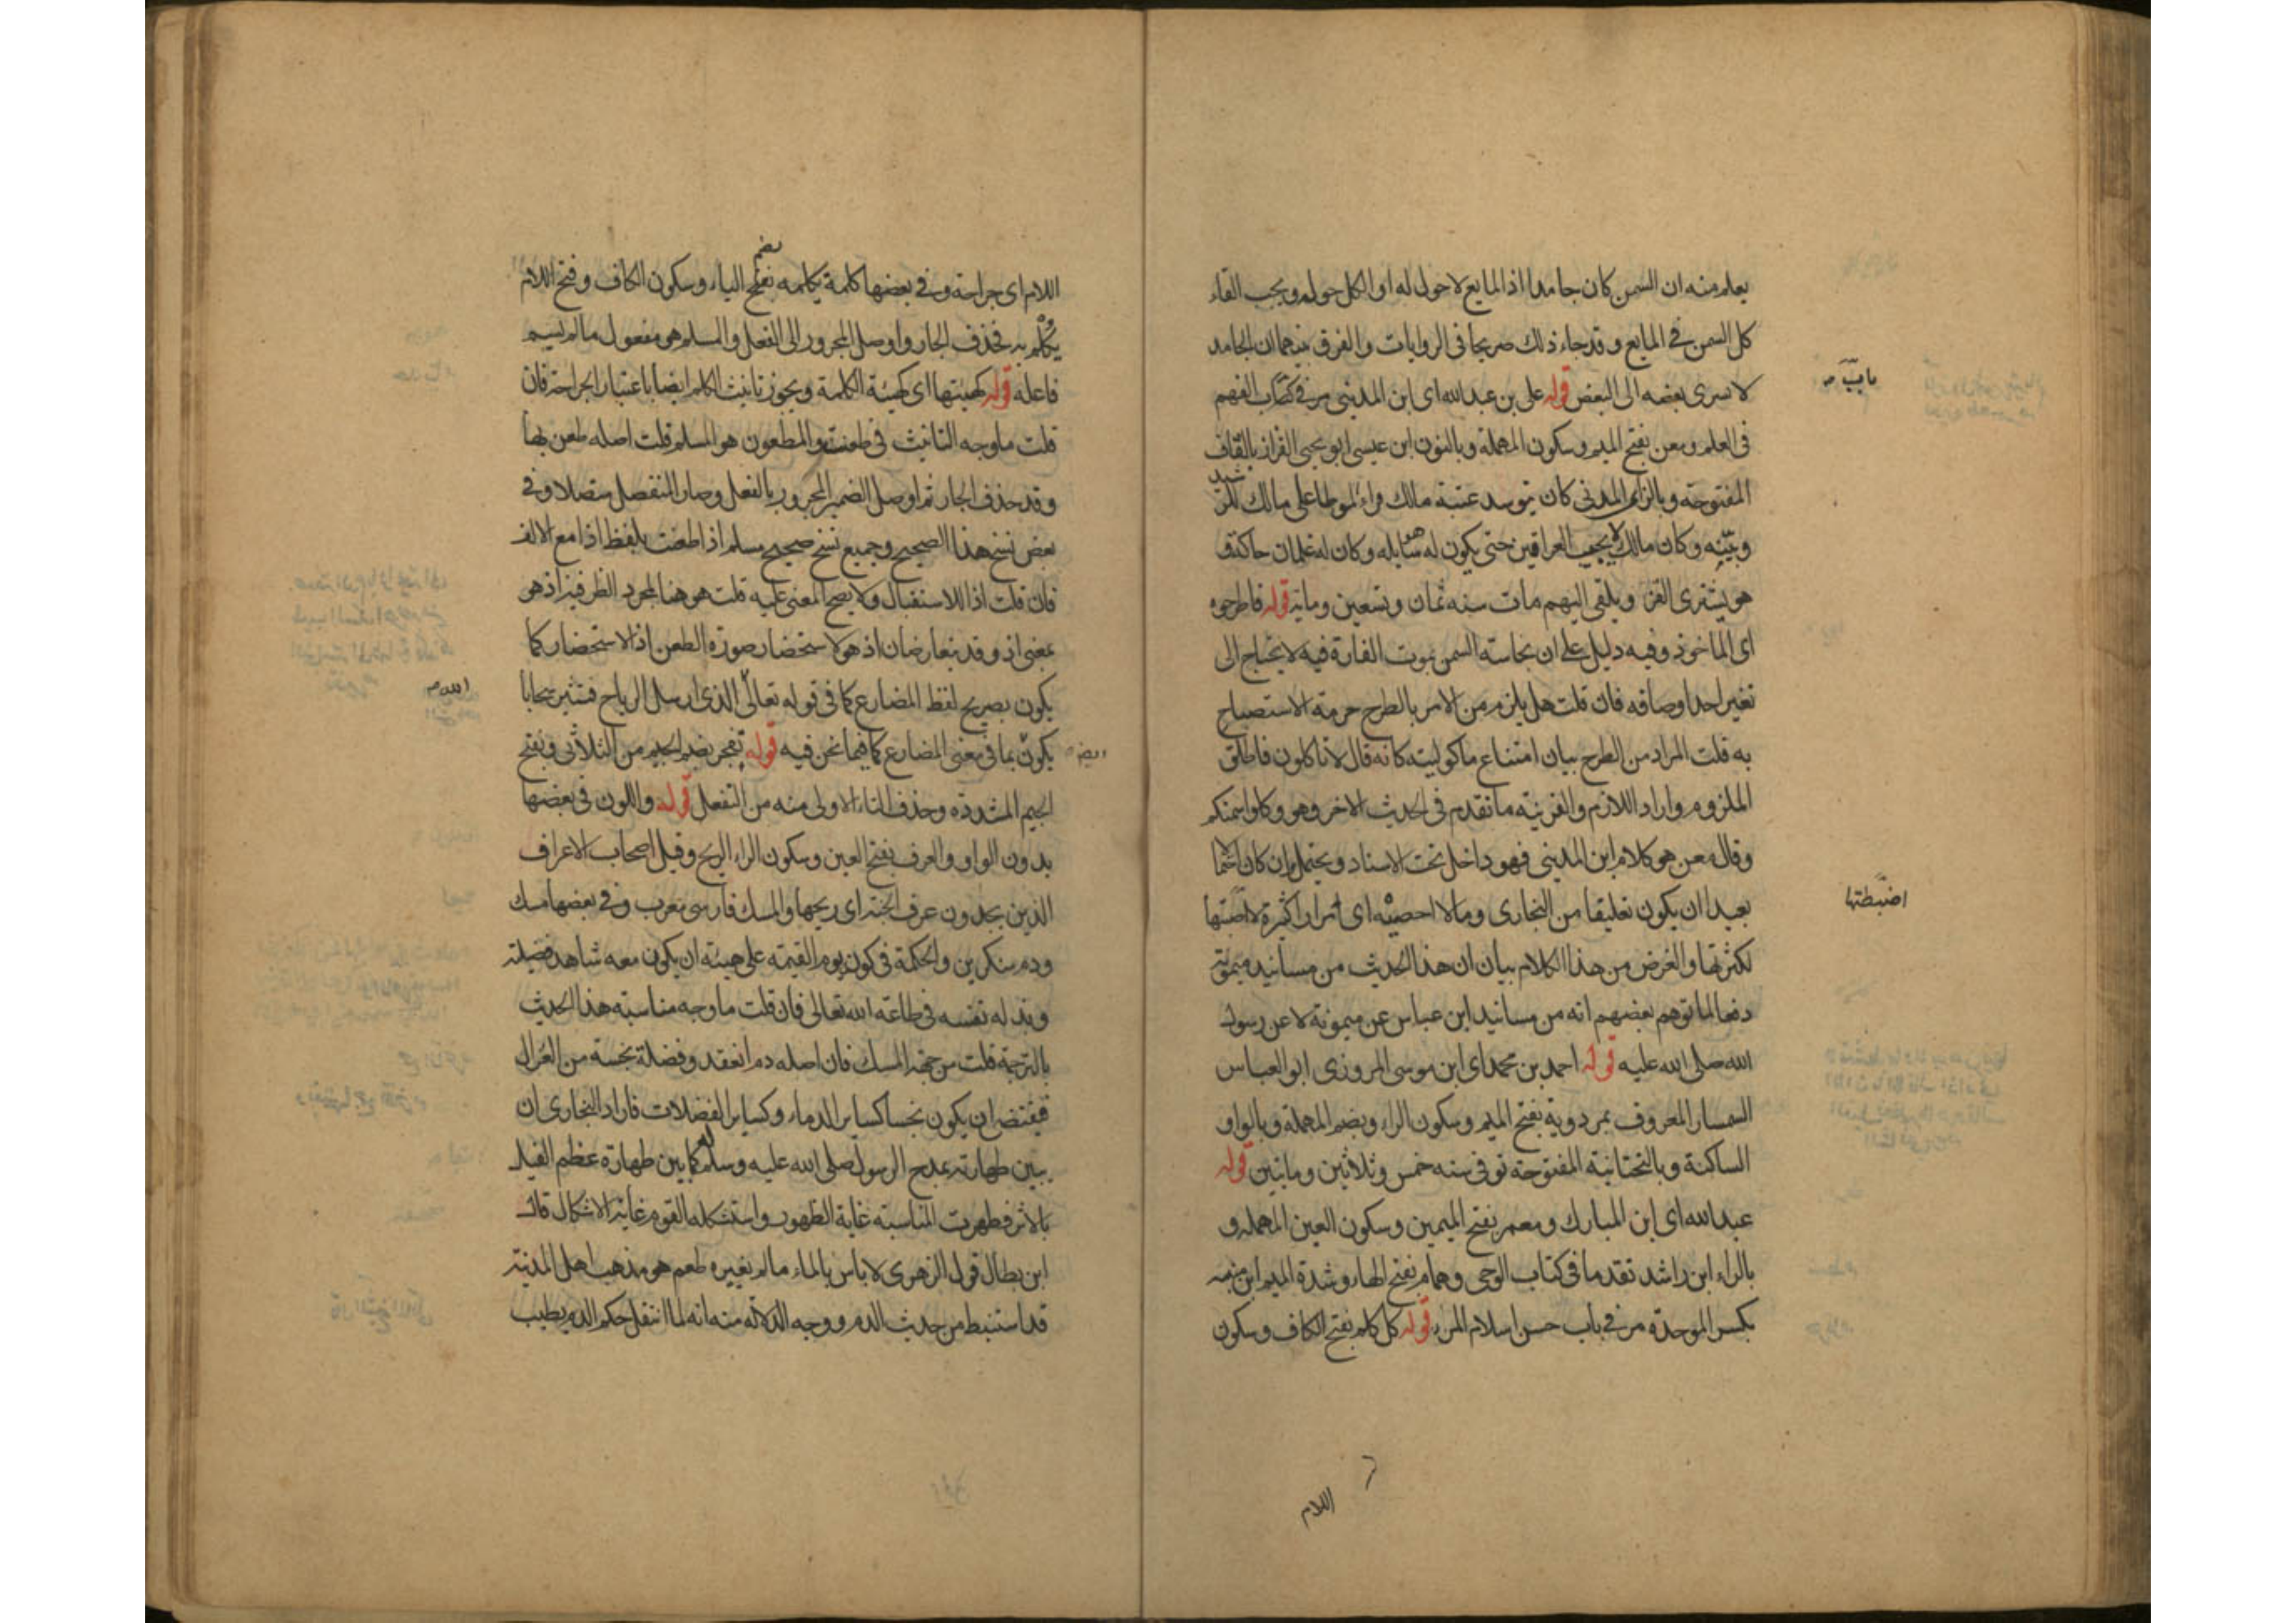 يعلم منه ان السمن كان جامدا اذ المايع لا حول له او الكل حوله ويجب القاء
كل السمن في المايع وقد جاء ذلك صريحا في الروايات والفرق بينهما ان الجامد
لا يسرى بعضه الى البعض قوله على بن عبد الله اى ابن المدينى مر في كتاب الفهم
فى العلم ومعن بفتح الميم وسكون المهملة وبالنون ابن عيسى ابو يحيى القزاز بالقاف
المفتوحة وبالزاى المدنى كان يتوسد عتبة مالك قراء الموطا على مالك للرشيد
وبنيه وكان مالك لا يجيب العراقيين حتى يكون هو سايله وكان له غلمان حاكة
هو يشترى القز ويلقى اليهم مات سنه ثمان وتسعين وماية قوله فاطرحوه
اى الماخوذ وفيه دليل على ان نجاسة السمن بموت الفارة فيه لا يحتاج الى
تغير احد اوصافه فان قلت هل يلزم من الامر بالطرح حرمة الاستصباح
به قلت المراد من الطرح بيان امتناع ماكوليته كانه قال لا تاكلون فاطلق
الملزوم واراد اللازم والقرينة ما تقدم فى الحديث الاخر وهو وكلوا سمنكم
وقال معن هو كلام ابن المدينى فهو داخل تحت الاسناد ويحتمل وان كان احتمالا
بعيدا ان يكون تعليقا من البخارى ومالا احصيه اى مرارا كثيرة لا اضبطها
لكثرتها والغرض من هذا الكلام بيان ان هذا الحديث من مسانيد ميمونة
دفعا لما توهم بعضهم انه من مسانيد ابن عباس عن ميمونة لا عن رسول
الله صلى الله عليه قوله احمد بن محمد اى ابن موسى المروزى ابو العباس
السمسار المعروف بمردوية بفتح الميم وسكون الراء وبضم المهملة وبالواو
الساكنة وبالتحتانية المفتوحة توفى سنه خمس وثلاثين وماتين قوله
عبد الله اى ابن المبارك ومعمر بفتح الميمين وسكون العين المهملة و
بالراء ابن راشد تقدما فى كتاب الوحى وهمام بفتح الهاء وشدة الميم ابن منبه
بكسر الموحدة مر في باب حسن اسلام المرء قوله كل كلم بفتح الكاف وسكون
اضبطتها
اللام
اللام اى جراحة وفي بعضها كلمة يكلمه بفتح الياء وسكون الكاف وفتح اللام
بضم
يكلم به فحذف الجار واوصل المجرور الى الفعل والمسلم هو مفعول ما لم يسم
فاعله قوله كهيئتها اى كهيئة الكلمة ويجوز تانيث الكلم ايضا باعتبار الجراحة فان
قلت ما وجه التانيث فى طعنت والمطعون هو المسلم قلت اصله طعن بها
وقد حذف الجار ثم اوصل الضمير المجرور بالفعل وصار المنفصل متصلا وفي
بعض نسخ هذا الصحيح وجميع نسخ صحيح مسلم اذا طعنت بلفظ اذا مع الالف
فان قلت اذا للاستقبال ولا يصح المعنى عليه قلت هو هنا لمجرد الظرفية اذ هو
بمعنى اذ وقد يتعارضان اذ هو لاستحضار صورة الطعن اذ الاستحضار كما
يكون بصريح لفظ المضارع كما فى قوله تعالى الذى ارسل الرياح فتثير سحابا
يكون بما فى معنى المضارع كما فيما نحن فيه قوله تفجر بضم الجيم من الثلاثى وبفتح
الجيم المشددة وحذف التاء الاولى منه من التفعل قوله واللون فى بعضها
بدون الواو والعرف بفتح العين وسكون الراء الريح وقيل اصحاب الاعراف
الذين يجدون عرف الجنة اى ريحها والمسك فارسى معرب وفي بعضها مسك
ودم منكرين والحكمة فى كون يوم القيمة على هيئة ان يكون معه شاهد فضيلته
وبذله نفسه فى طاعة الله تعالى فان قلت ما وجه مناسبة هذا الحديث
بالترجمة قلت من جهة المسك فان اصله دم انعقد وفضلة نجسة من الغزال
فيقتضى ان يكون نجسا كساير الدماء وكساير الفضلات فاراد البخارى ان
يبين طهارته بمدح الرسول صلى الله عليه وسلم له كما بين طهارة عظم الفيل
بالاثر فظهرت المناسبة غاية الظهور واستشكله القوم غاية الاشكال قال
ابن بطال قول الزهرى لا باس بالماء ما لم يغيره طعم هو مذهب اهل المدينة
قد استنبط من حديث الدم ووجه الدلالة منه انه لما انتقل حكم الدم بطيب
الله
ايضا